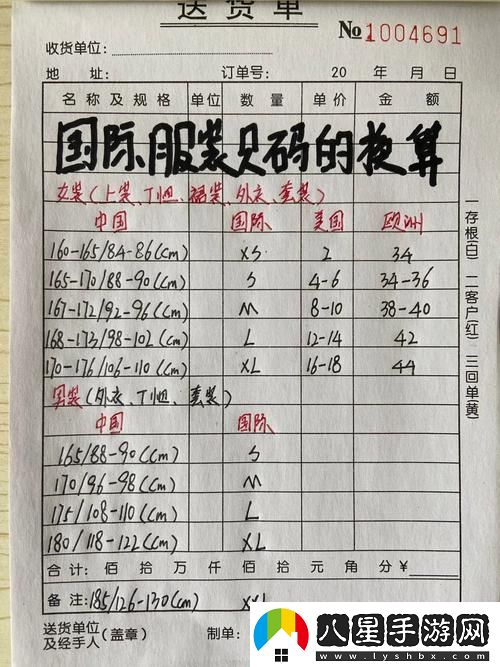 送货单
№1004691
收货单位：
地 址： 订单号： 20 年 月 日
名称及规格 单位 数量 单价 金额
国际服装尺码的换算
女装（上装、T恤、裙装、外衣、套装）
中国 国际 美国 欧洲
160-165/84-86(cm) XS 2 34
165-170/88-90(cm) S 4-6 34-36
167-172/92-96(cm) M 8-10 38-40
168-173/98-102(cm) L 12-14 42
170-176/106-110(cm) XL 16-18 44
男装（外衣、T恤、套装）
中国 国际
165/88-90(cm) S
170/96-98(cm) M
175/108-110(cm) L
180/118-122(cm) XL
合计： 佰 拾 万 仟 佰 拾 元 角 分￥
备注：185/126-130(cm) XXL
送货单位
及经手人（盖章） 制单：
一存根(白) 二客户(红) 三回单(黄)
八星手游网
www.lyshbx.com